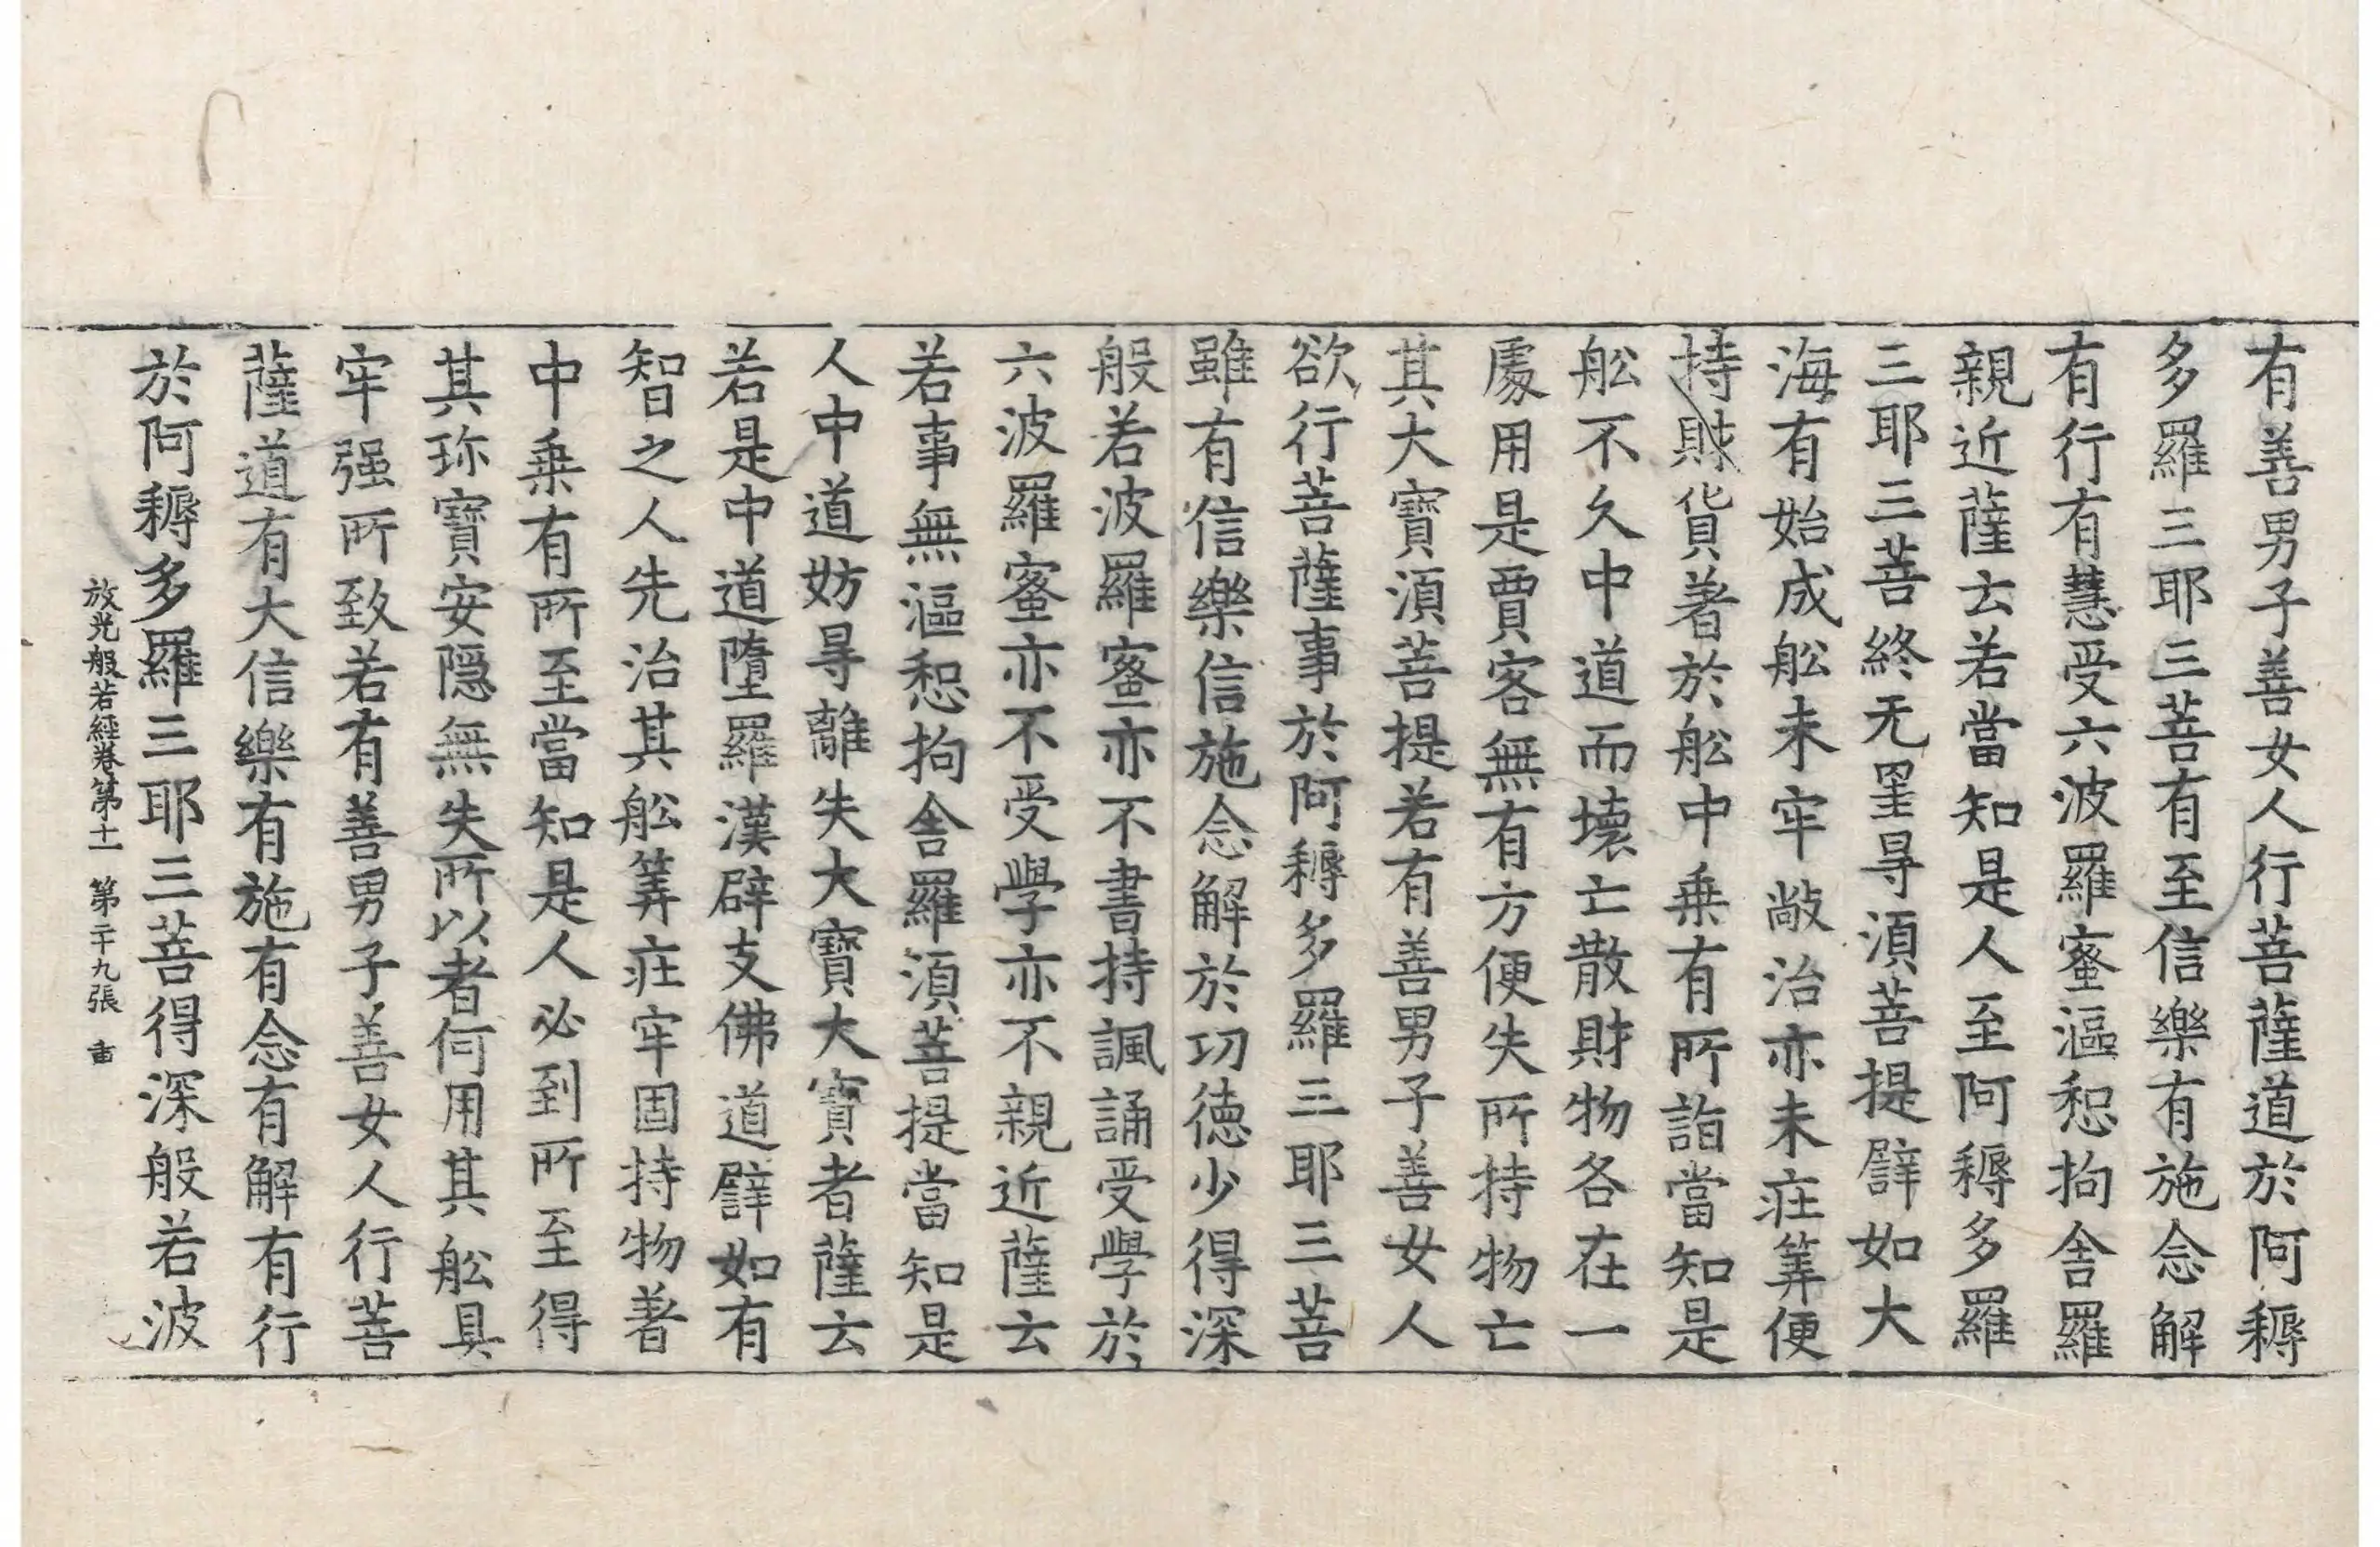 有善男子善女人行菩薩道於阿耨
多羅三耶三菩有至信樂有施念解
有行有慧受六波羅蜜漚惒拘舍羅
親近薩云若當知是人至阿耨多羅
三耶三菩終无罣㝵須菩提譬如大
海有始成舩未牢敞治亦未疘筭便
持財貨著於舩中乗有所詣當知是
舩不久中道而壞亡散財物各在一
處用是賈客無有方便失所持物亡
其大寶須菩提若有善男子善女人
欲行菩薩事於阿耨多羅三耶三菩
雖有信樂信施念解於功德少得深
般若波羅蜜亦不書持諷誦受學於
六波羅蜜亦不受學亦不親近薩云
若事無漚惒拘舍羅須菩提當知是
人中道妨㝵離失大寶大寶者薩云
若是中道墮羅漢辟支佛道譬如有
智之人先治其舩筭疘牢固持物著
中乗有所至當知是人必到所至得
其珎寶安隱無失所以者何用其舩具
牢强所致若有善男子善女人行菩
薩道有大信樂有施有念有解有行
於阿耨多羅三耶三菩得深般若波
放光般若經卷第十一 第二十九張 𤰫